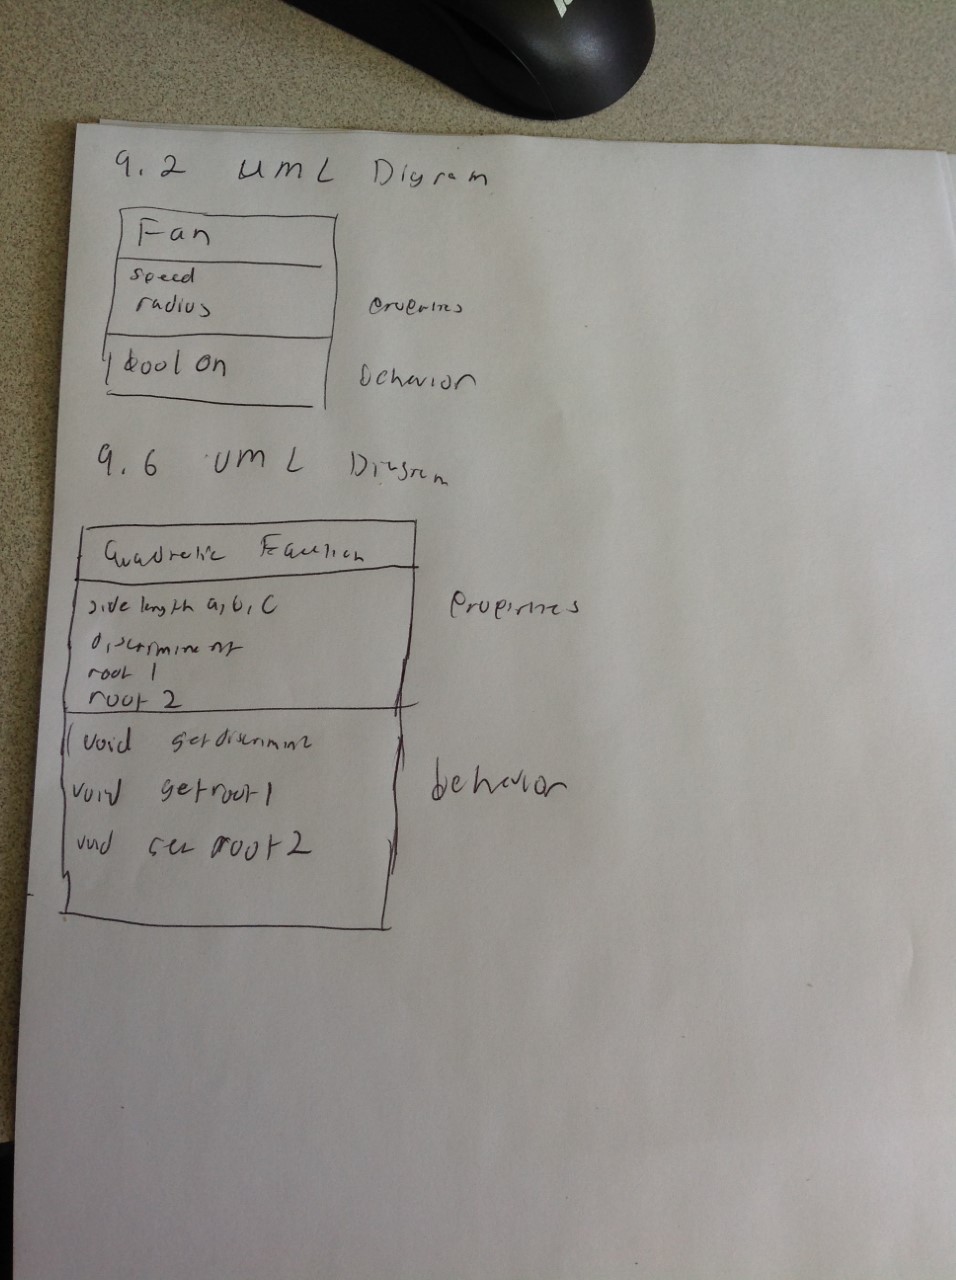 9.2 UML Digram
Fan
speed
radius
properties
bool on
behavior
9.6 UML Diagram
Quadratic Equation
side length a, b, c
discriminent
root 1
root 2
properties
void getdiscrimint
void getroot1
void get root2
behavior